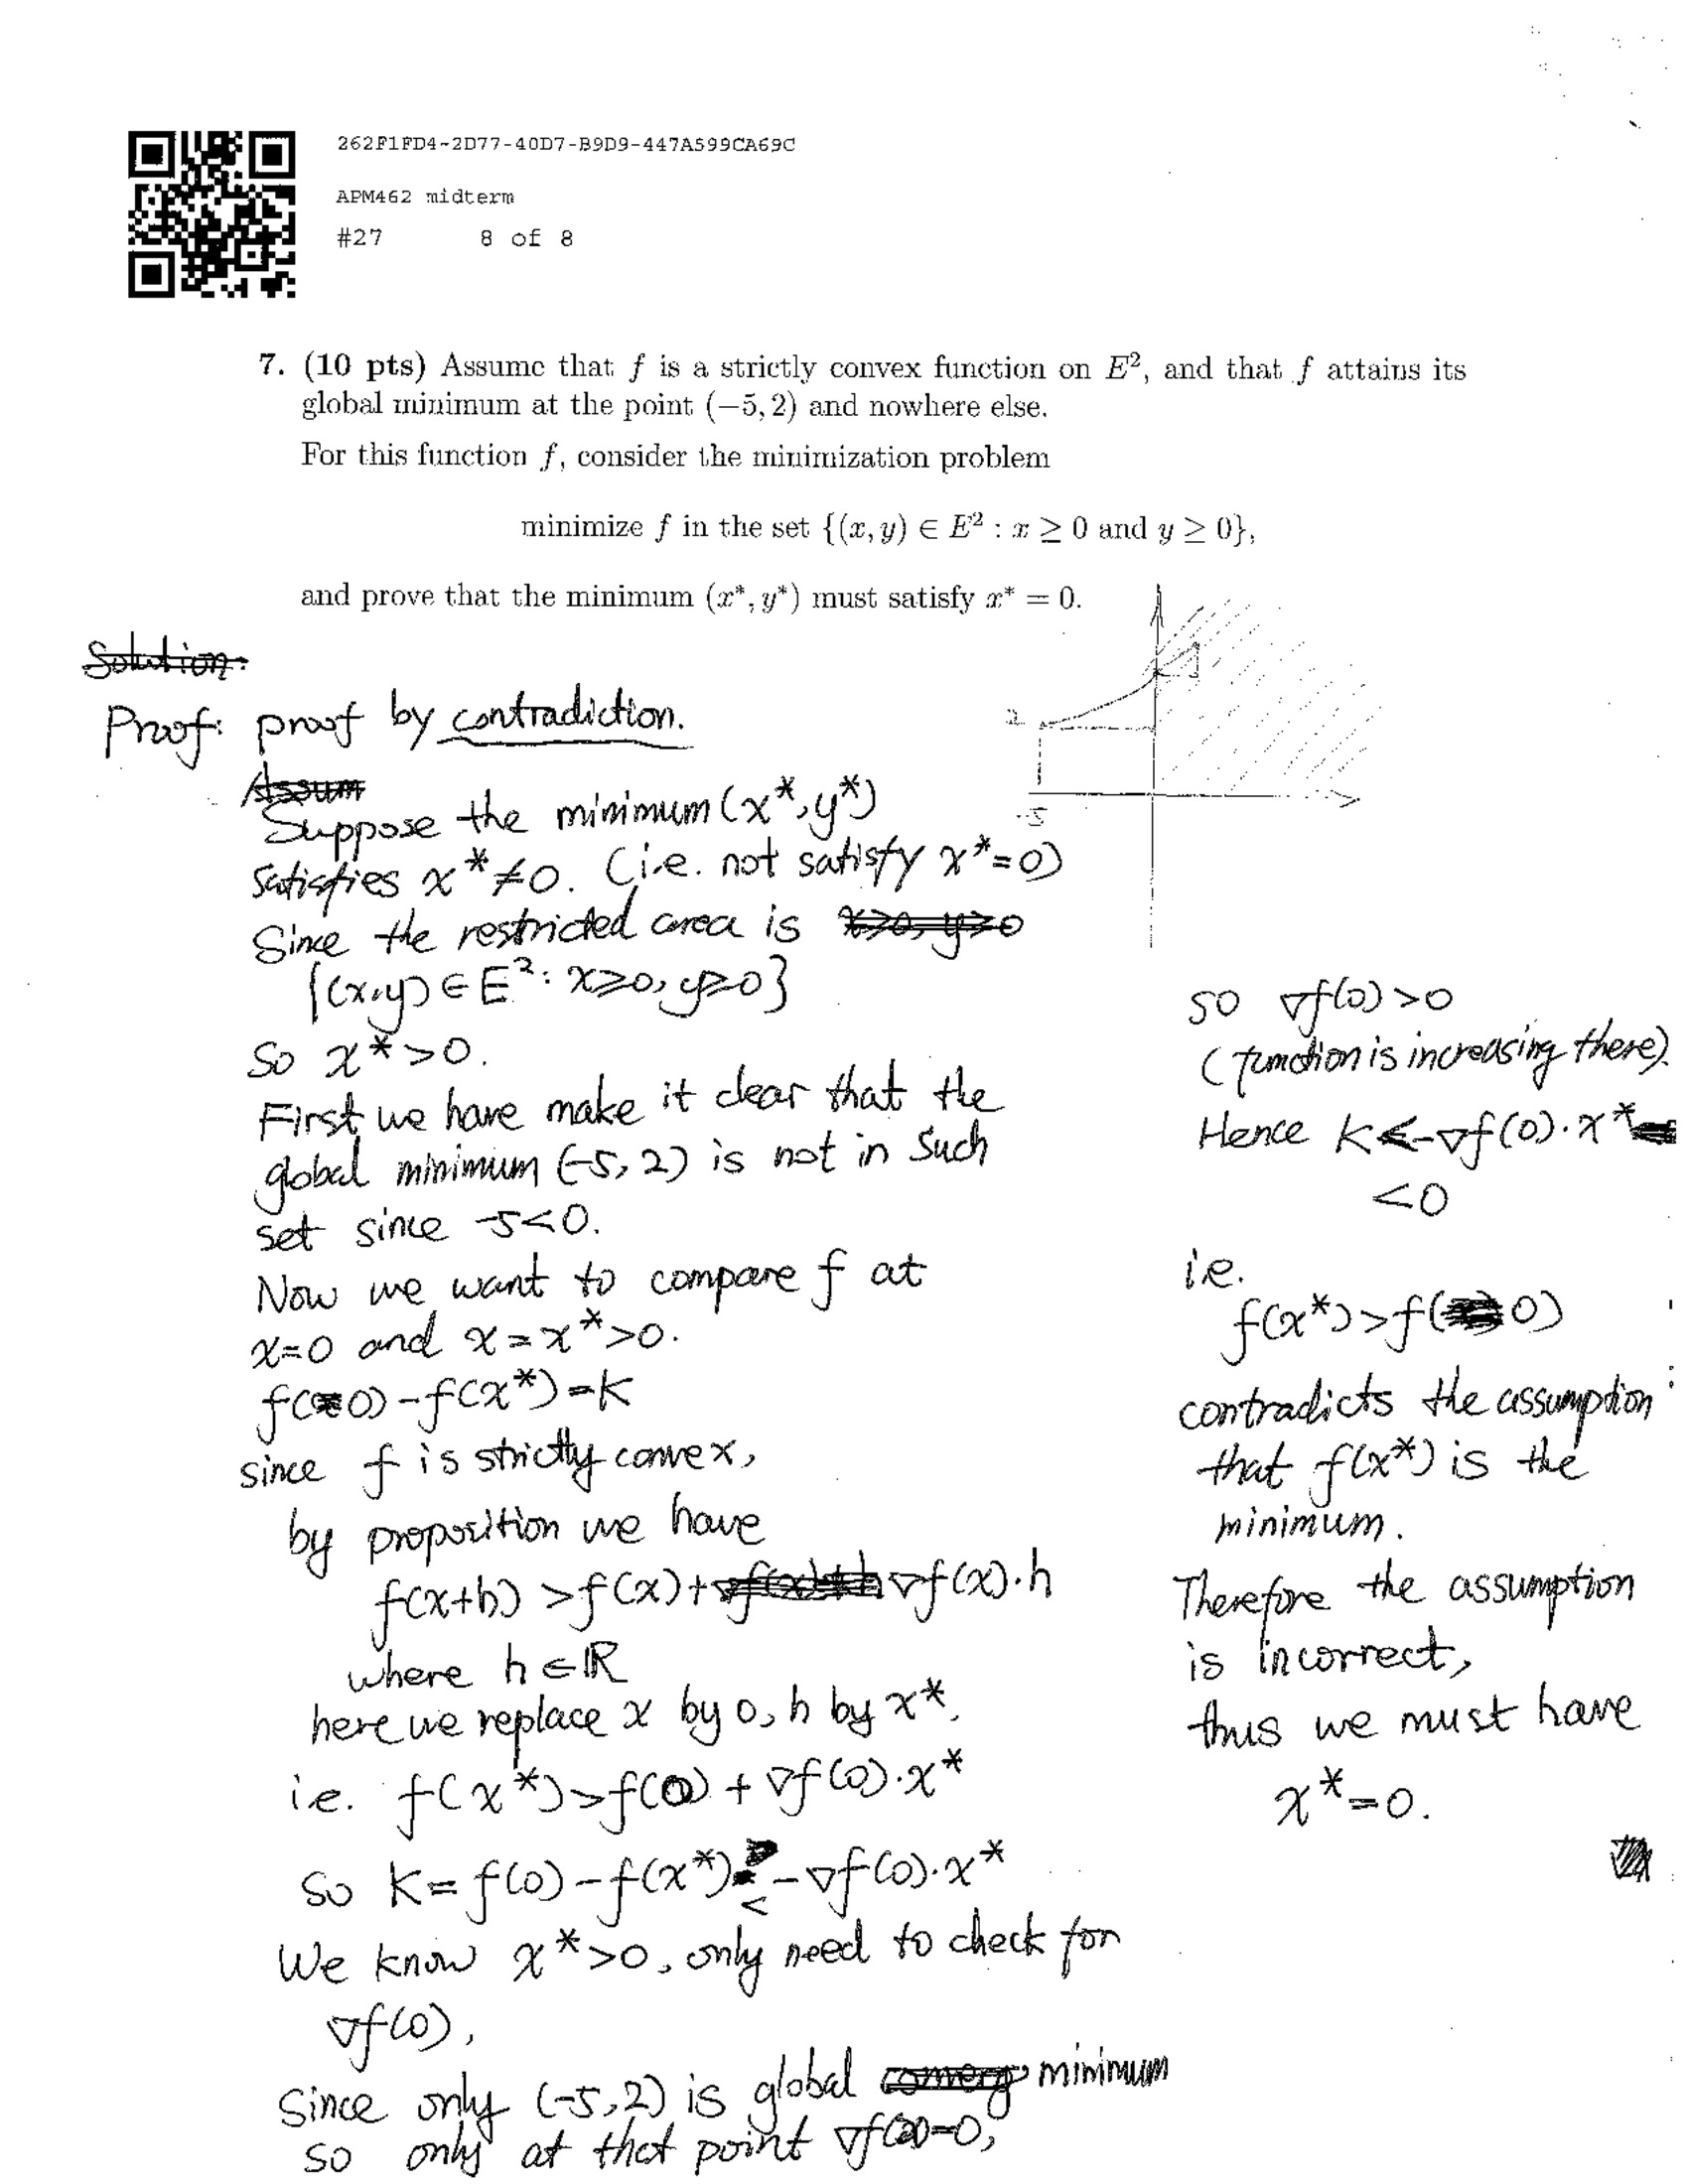 262F1FD4-2D77-40D7-B9D9-447A599CA69C
APM462 midterm
#27 8 of 8
7. (10 pts) Assume that f is a strictly convex function on E², and that f attains its
global minimum at the point (−5, 2) and nowhere else.
For this function f, consider the minimization problem
minimize f in the set {(x, y) ∈ E² : x ≥ 0 and y ≥ 0},
and prove that the minimum (x*, y*) must satisfy x* = 0.
2
-5
Solution:
Proof: proof by contradiction.
Assum
Suppose the minimum (x*, y*)
satisfies x* ≠ 0. (i.e. not satisfy x* = 0)
Since the restricted area is x≥0, y≥0
{(x,y) ∈ E²: x≥0, y≥0}
So x* > 0.
First we have make it clear that the
global minimum (-5, 2) is not in such
set since -5<0.
Now we want to compare f at
x=0 and x=x*>0.
f(0) - f(x*) = K
since f is strictly convex,
by proposition we have
f(x+h) > f(x) + ∇f(x)·h
where h ∈ ℝ
here we replace x by 0, h by x*.
i.e. f(x*) > f(0) + ∇f(0)·x*
So K = f(0) - f(x*) < -∇f(0)·x*
We know x* > 0, only need to check for
∇f(0),
Since only (-5,2) is global minimum
so only at that point ∇f( )=0,
so ∇f(0) > 0
(function is increasing there).
Hence K < -∇f(0)·x*
< 0
i.e.
f(x*) > f(0)
contradicts the assumption
that f(x*) is the
minimum.
Therefore the assumption
is incorrect,
thus we must have
x* = 0.